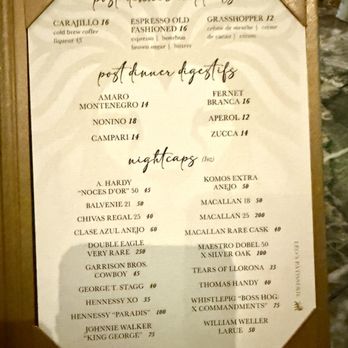 CARAJILLO 16
cold brew coffee
liqueur 43
ESPRESSO OLD
FASHIONED 16
espresso | bourbon
brown sugar | bitters
GRASSHOPPER 12
crème de menthe | crème
de cacao | cream
post dinner digestifs
AMARO
MONTENEGRO 14
NONINO 18
CAMPARI 14
FERNET
BRANCA 16
APEROL 12
ZUCCA 14
nightcaps (1oz)
A. HARDY
"NOCES D'OR" 50 45
BALVENIE 21 50
CHIVAS REGAL 25 40
CLASE AZUL ANEJO 60
DOUBLE EAGLE
VERY RARE 250
GARRISON BROS.
COWBOY 45
GEORGE T. STAGG 40
HENNESSY XO 35
HENNESSY "PARADIS" 100
JOHNNIE WALKER
"KING GEORGE" 75
KOMOS EXTRA
ANEJO 50
MACALLAN 18 50
MACALLAN 25 200
MACALLAN RARE CASK 40
MAESTRO DOBEL 50
X SILVER OAK 100
TEARS OF LLORONA 35
THOMAS HANDY 40
WHISTLEPIG "BOSS HOG:
X COMMANDMENTS" 75
WILLIAM WELLER
LARUE 50